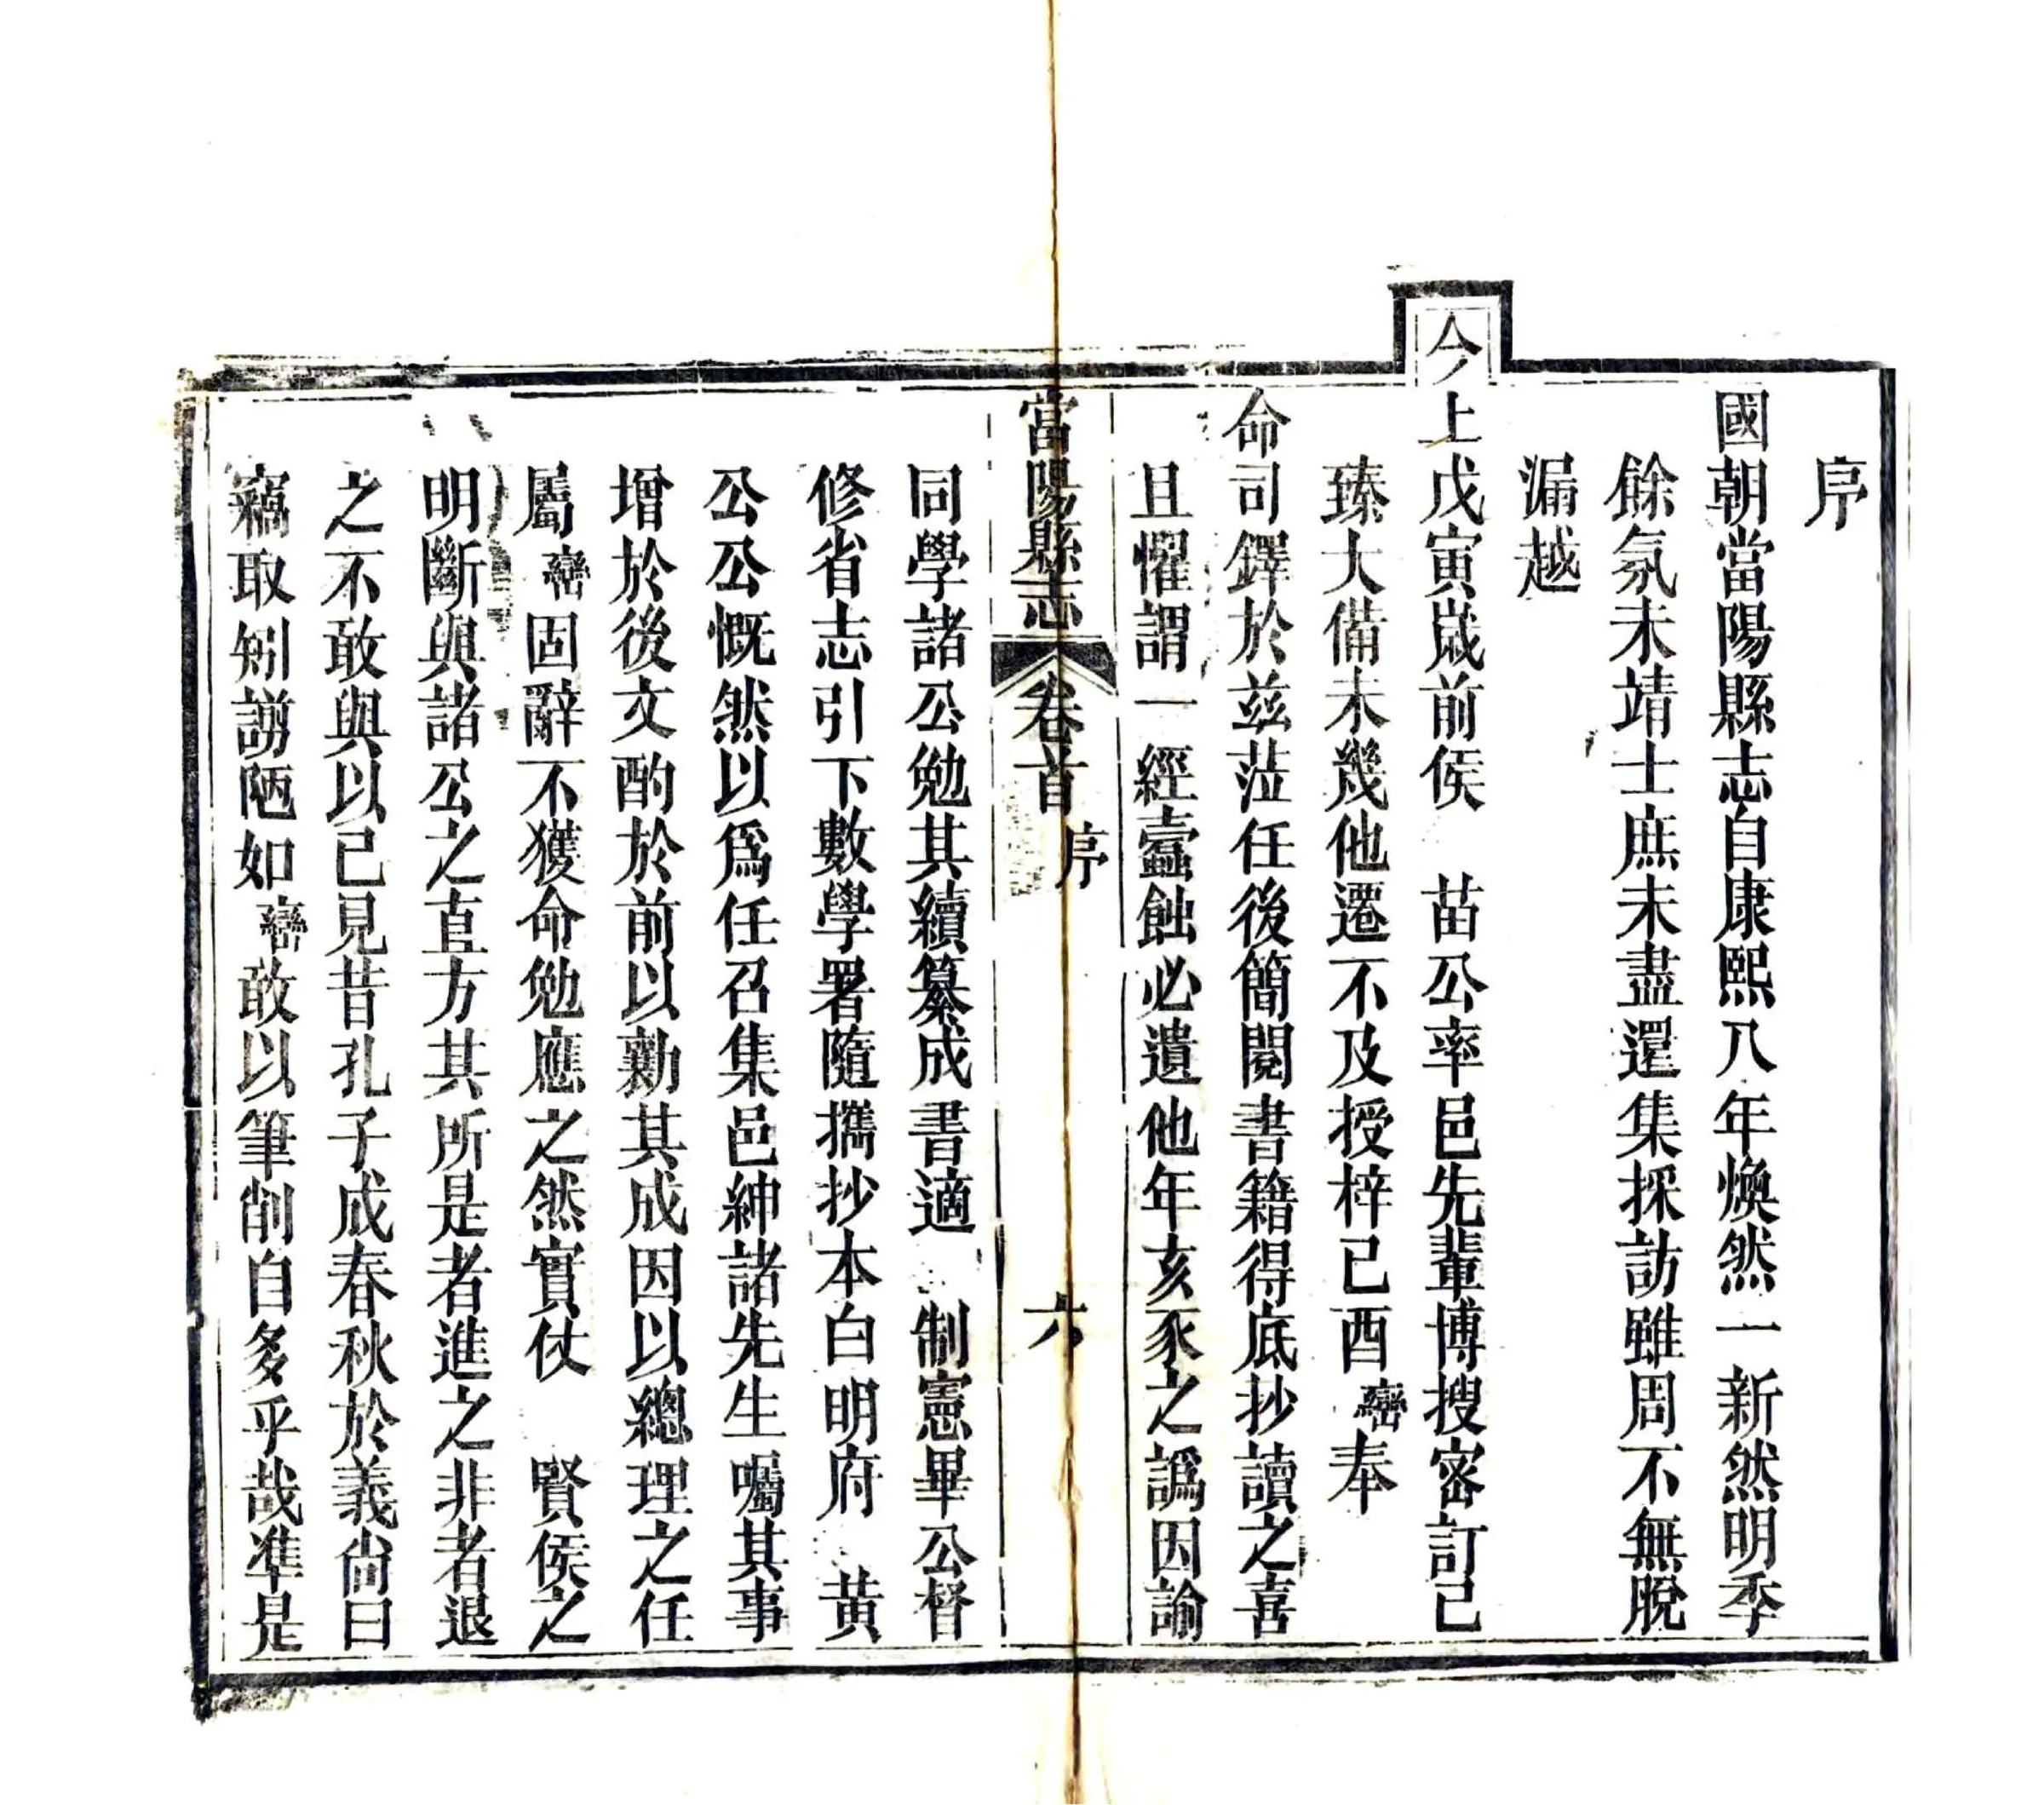 序
國朝當陽縣志自康熙八年煥然一新然明季
餘氛未靖士庶未盡還集採訪雖周不無脫
漏越
今上戊寅歲前侯　苗公率邑先輩博搜密訂已
臻大備未幾他遷不及授梓已酉巒奉
命司鐸於兹蒞任後簡閱書籍得底抄讀之喜
且懼謂一經蠹蝕必遺他年亥豕之譌因諭
當陽縣志　卷首　序　六
同學諸公勉其續纂成書適　制憲畢公督
修省志引下數學署隨攜抄本白明府　黃
公公慨然以爲任召集邑紳諸先生囑其事
增於後文酌於前以勷其成因以總理之任
屬巒固辭不獲命勉應之然實仗　賢侯之
明斷與諸公之直方其所是者進之非者退
之不敢與以已見昔孔子成春秋於義尙曰
竊取矧謭陋如巒敢以筆削自多乎哉準是